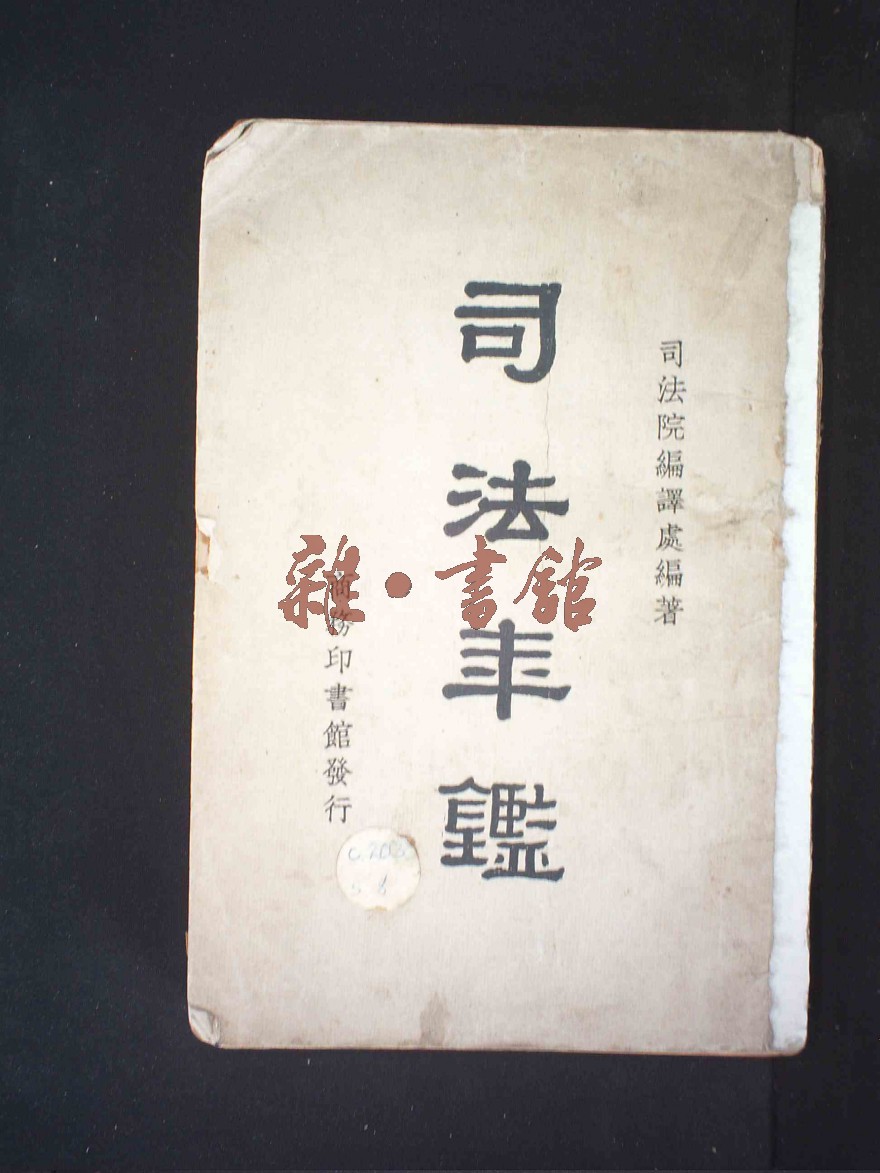 司法院編譯處編著
司法年鑑
商務印書館發行
雜·書館